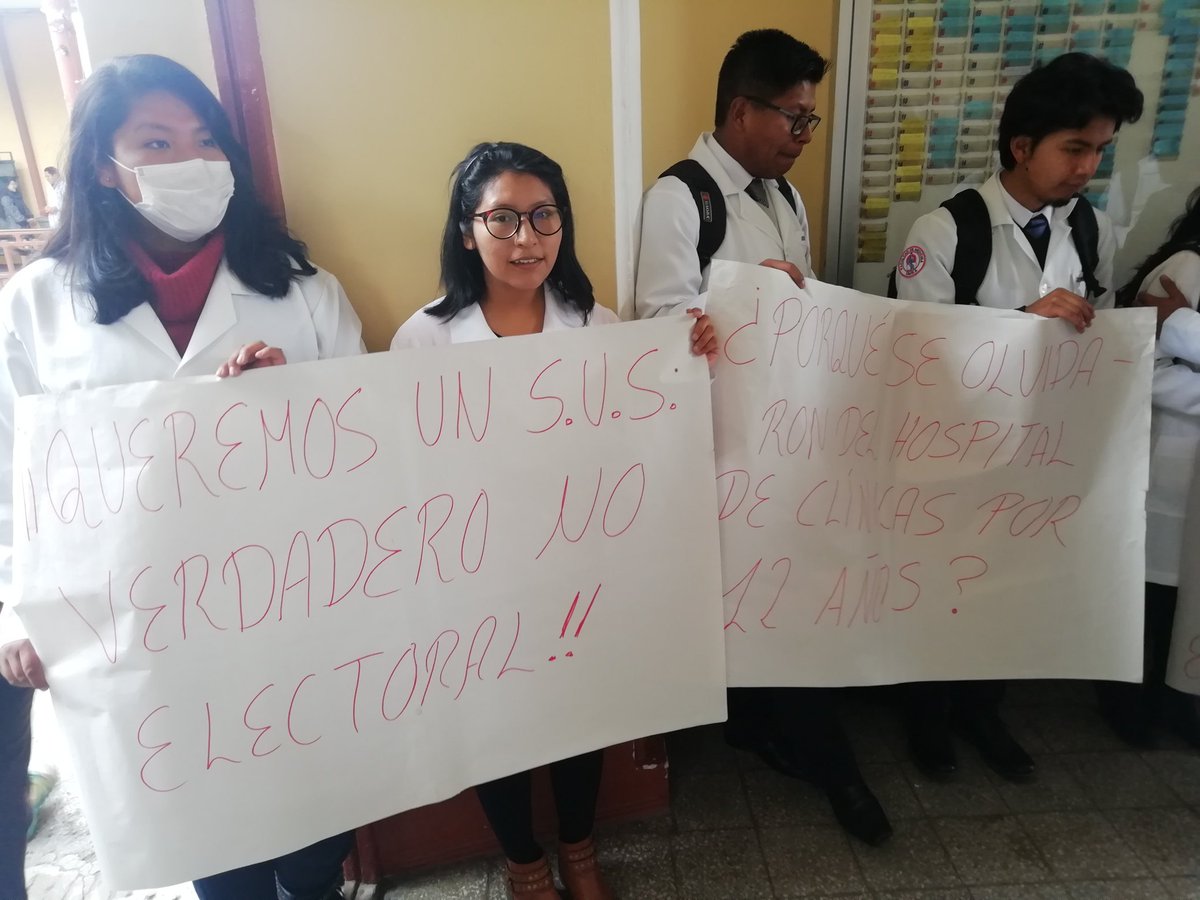 ¡¡QUEREMOS UN S.U.S.
VERDADERO NO
ELECTORAL!!
¿PORQUÉ SE OLVIDA-
RON DEL HOSPITAL
DE CLÍNICAS POR
12 AÑOS?